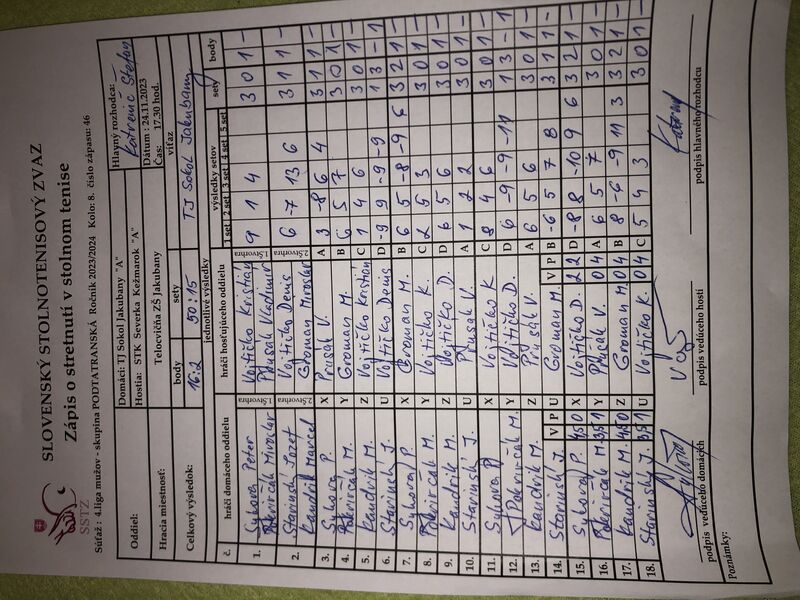 SLOVENSKÝ STOLNOTENISOVÝ ZVÄZ
Zápis o stretnutí v stolnom tenise
SSTZ
Súťaž : 4.liga mužov - skupina PODTATRANSKÁ Ročník 2023/2024 Kolo: 8. číslo zápasu: 46
Oddiel: Domáci: TJ Sokol Jakubany "A" Hlavný rozhodca:
Hostia: STK Severka Kežmarok "A" Štefan
Hracia miestnosť: Telocvičňa ZŠ Jakubany Dátum : 24.11.2023
Čas: 17.30 hod.
Celkový výsledok: body sety víťaz
16:2 50:15 TJ Sokol Jakubany
jednotlivé výsledky
č. hráči domáceho oddielu hráči hosťujúceho oddielu výsledky setov sety body
1 set 2 set 3 set 4 set 5 set
1. Suhova Peter 1.Štvorhra Vojtičko Kristián 1.Štvorhra 9 1 4 3 0 1 -
Pekivčák Miroslav Prusák Vladimír
2. Starinský Jozef 2.Štvorhra Vojtičko Denis 2.Štvorhra 6 -7 13 6 3 1 1 -
Kandrik Marcel Groman Miroslav
3. Suhova P. X Prusák V. A 3 -8 6 4 3 1 1 -
4. M. Y Groman M. B 6 5 7 3 0 1 -
5. Kandrik M. Z Vojtičko Kristián C 1 4 6 3 0 1 -
6. Starinský J. U Vojtičko Denis D -9 9 -9 -9 1 3 - 1
7. Suhova P. X Groman M. B 6 5 -8 -9 6 3 2 1 -
8. M. Y Vojtičko K. C 2 5 3 3 0 1 -
9. Kandrik M. Z Vojtičko D. D 6 5 6 3 0 1 -
10. Starinský J. U Prusák V. A 1 2 2 3 0 1 -
11. Suhova P. X Vojtičko K C 8 4 6 3 0 1 -
12. M. Y Vojtičko D. D 6 -9 -9 -11 1 3 - 1
13. Kandrik M. Z Prusák V. A 6 5 6 3 0 1 -
14. Starinský J. V P U Groman M. V P B -6 5 7 8 3 1 1 -
15. Suhova P. 4 5 0 X Vojtičko D. 2 2 D -8 8 -10 9 6 3 2 1 -
16. M. 3 5 1 Y Prusák V. 0 4 A 6 5 7 3 0 1 -
17. Kandrik M. 4 5 0 Z Groman M. 0 4 B 8 -6 -9 11 3 3 2 1 -
18. Starinský J. 3 5 1 U Vojtičko K. 0 4 C 5 4 3 3 0 1 -
podpis vedúceho domácich podpis vedúceho hostí podpis hlavného rozhodcu
Poznámky: